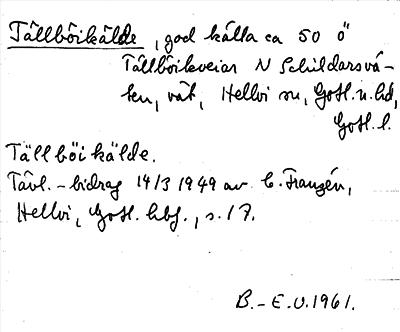 Tällböikälde, god källa ca 50 ö
Tällböikveiar N Schildarsvä-
ten, vät, Hellvi sn, Gotl. n. hd,
Gotl. l.
Tällböi kälde.
Tävl.-bidrag 14/3 1949 av C. Franzén,
Hellvi, Gotl. hbf., s. 17.
B.-E.U. 1961.